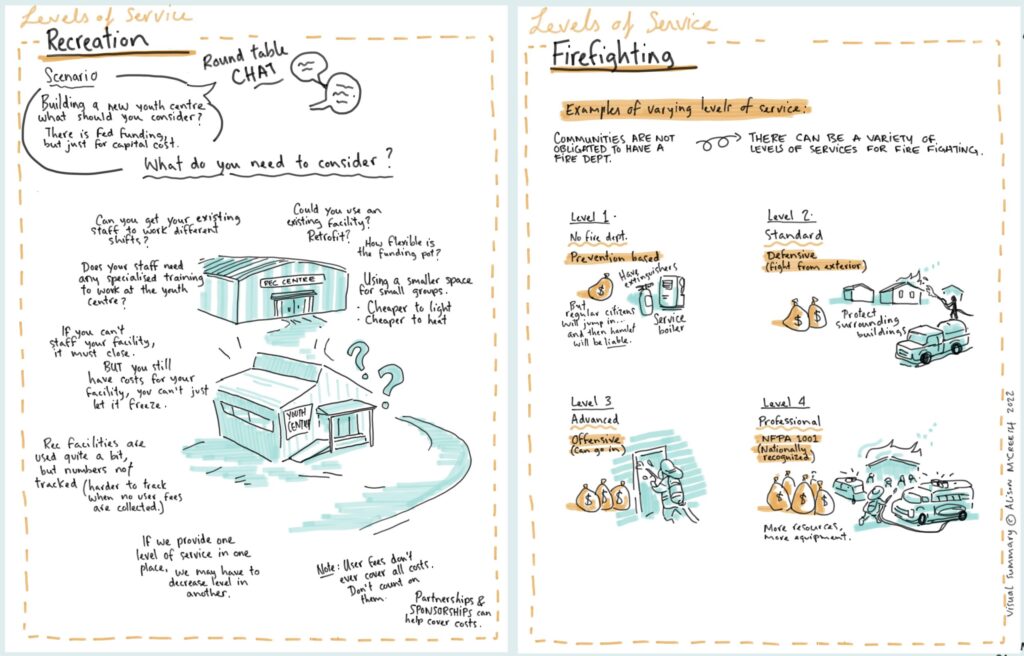 Levels of Service
Recreation
Round table
CHAT
Scenario
Building a new youth centre
what should you consider?
There is fed funding,
but just for capital cost.
What do you need to consider?
Can you get your existing
staff to work different
shifts?
Could you use an
existing facility?
Retrofit?
How flexible is
the funding pot?
Does your staff need
any specialized training
to work at the youth
centre?
REC CENTRE
Using a smaller space
for small groups.
- Cheaper to light
- Cheaper to heat
If you can't
staff your facility,
it must close.
BUT you still
have costs for your
facility, you can't just
let it freeze.
? ?
YOUTH
CENTRE
Rec facilities are
used quite a bit,
but numbers not
tracked (harder to track
when no user fees
are collected.)
If we provide one
level of service in one
place, we may have to
decrease level in
another.
Note: User fees don't
ever cover all costs.
Don't count on
them.
Partnerships &
SPONSORSHIPS can
help cover costs.
Levels of Service
Firefighting
Examples of varying levels of service:
COMMUNITIES ARE NOT
OBLIGATED TO HAVE A
FIRE DEPT.
THERE CAN BE A VARIETY OF
LEVELS OF SERVICES FOR FIRE FIGHTING.
Level 1.
No fire dept.
Prevention based
$
Have
extinguishers
Service
boiler
But
regular citizens
will jump in...
and then hamlet
will be liable.
Level 2.
Standard
Defensive
(fight from exterior)
$ $
Protect
surrounding
buildings
Level 3
Advanced
Offensive
(Can go in)
$ $ $
Level 4
Professional
NFPA 1001
(Nationally
recognized)
$ $ $ $
More resources,
more equipment.
VISUAL SUMMARY © ALISON MCCREESH 2022